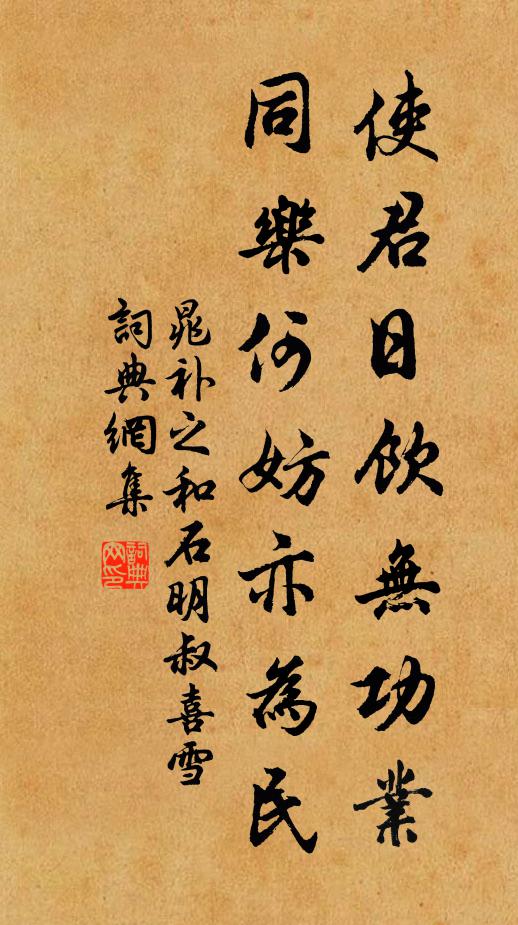 使君日飲無功業
同樂何妨亦為民
晁补之和石明叔喜雪
詞典網集
詞典網印